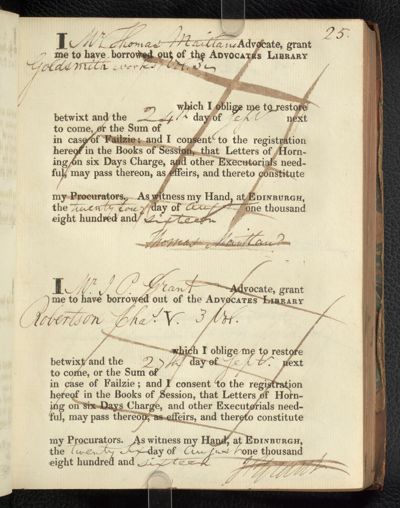 25.
I Mr. Thomas Maitland Advocate, grant
me to have borrowed out of the ADVOCATES LIBRARY
Goldsmith works
which I oblige me to restore
betwixt and the 24th day of Sept. next
to come, or the Sum of
in case of Failzie; and I consent to the registration
hereof in the Books of Session, that Letters of Horn-
ing on six Days Charge, and other Executorials need-
ful, may pass thereon, as effeirs, and thereto constitute
my Procurators. As witness my Hand, at EDINBURGH,
the twenty four day of Augt. one thousand
eight hundred and sixteen
Thomas Maitland
I Mr. J. P. Grant Advocate, grant
me to have borrowed out of the ADVOCATES LIBRARY
Robertson Chas. V. 3
which I oblige me to restore
betwixt and the 27th day of Sept. next
to come, or the Sum of
in case of Failzie; and I consent to the registration
hereof in the Books of Session, that Letters of Horn-
ing on six Days Charge, and other Executorials need-
ful, may pass thereon, as effeirs, and thereto constitute
my Procurators. As witness my Hand, at EDINBURGH,
the twenty six day of August one thousand
eight hundred and sixteen
J P Grant